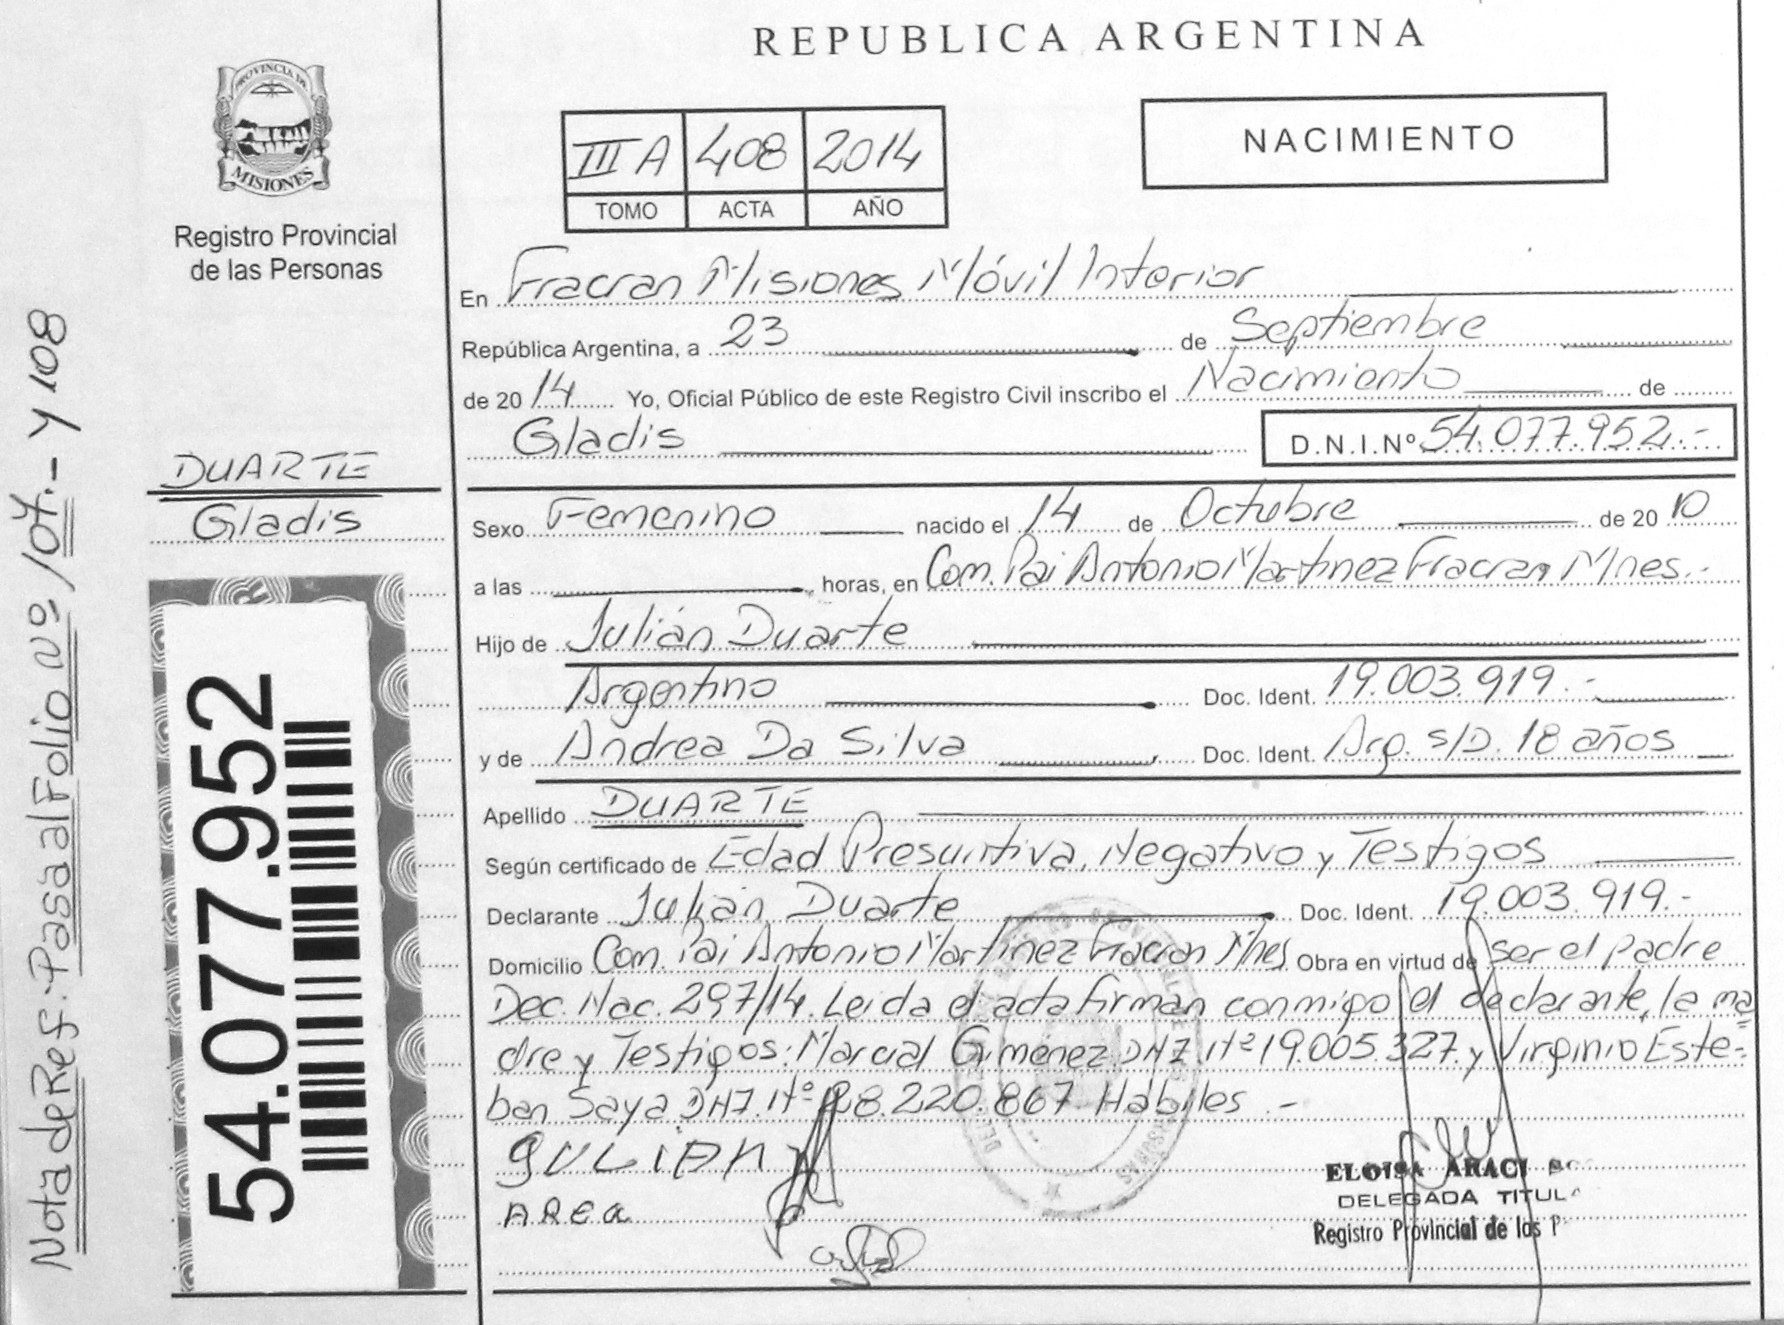 REPUBLICA ARGENTINA
PROVINCIA DE
MISIONES
Registro Provincial
de las Personas
III A 408 2014
TOMO ACTA AÑO
NACIMIENTO
En Fracran Misiones Móvil Interior
República Argentina, a 23 de Septiembre
de 2014 Yo, Oficial Público de este Registro Civil inscribo el Nacimiento de
Gladis D.N.I.Nº 54.077.952.-
DUARTE
Gladis
Sexo Femenino nacido el 14 de Octubre de 2010
a las horas, en Com. Pai Antonio Martinez Fracran Mnes.-
Hijo de Julián Duarte
Argentino Doc. Ident. 19.003.919.-
y de Andrea Da Silva Doc. Ident. Arg. s/D. 18 años
Apellido DUARTE
Según certificado de Edad Presuntiva, Negativo y Testigos
Declarante Julián Duarte Doc. Ident. 19.003.919.-
Domicilio Com. Pai Antonio Martinez Fracran Mnes Obra en virtud de ser el padre
Dec. Nac. 297/14. Leida el acta firman conmigo el declarante, la ma
dre y Testigos: Marcial Giménez DNI. Nº 19.005.327. y Virginio Este-
ban Saya DNI. Nº 28.220.867 Hábiles.-
JULIAN
AREA
ELOISA ARACI
DELEGADA TITUL
Registro Provincial de las P
54.077.952
Nota de Ref: Pasa al Folio Nº 107.- Y 108